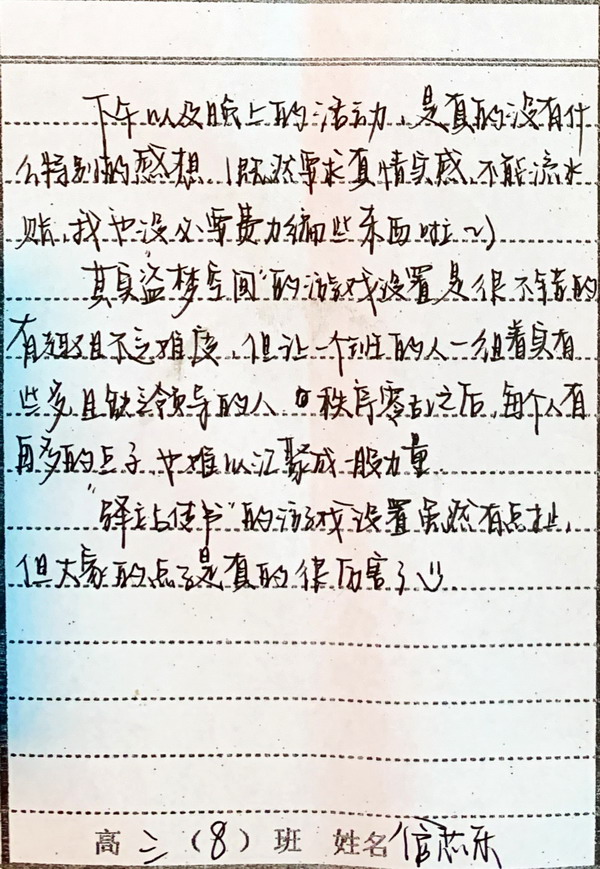 下午以及晚上的活动,是真的没有什
么特别的感想。(既然要求真情实感,不能流水
账,我也没必要费力编些东西啦~)
其实“盗梦空间”的游戏设置是很不错的
有趣且不乏难度,但让一个班的人一组着实有
些多,且缺乏领导的人。秩序零乱之后,每个人有
再多的点子,也难以汇聚成一股力量
“驿站传书”的游戏设置虽然有点扯,
但大家的点子是真的很厉害了
高二(8)班 姓名